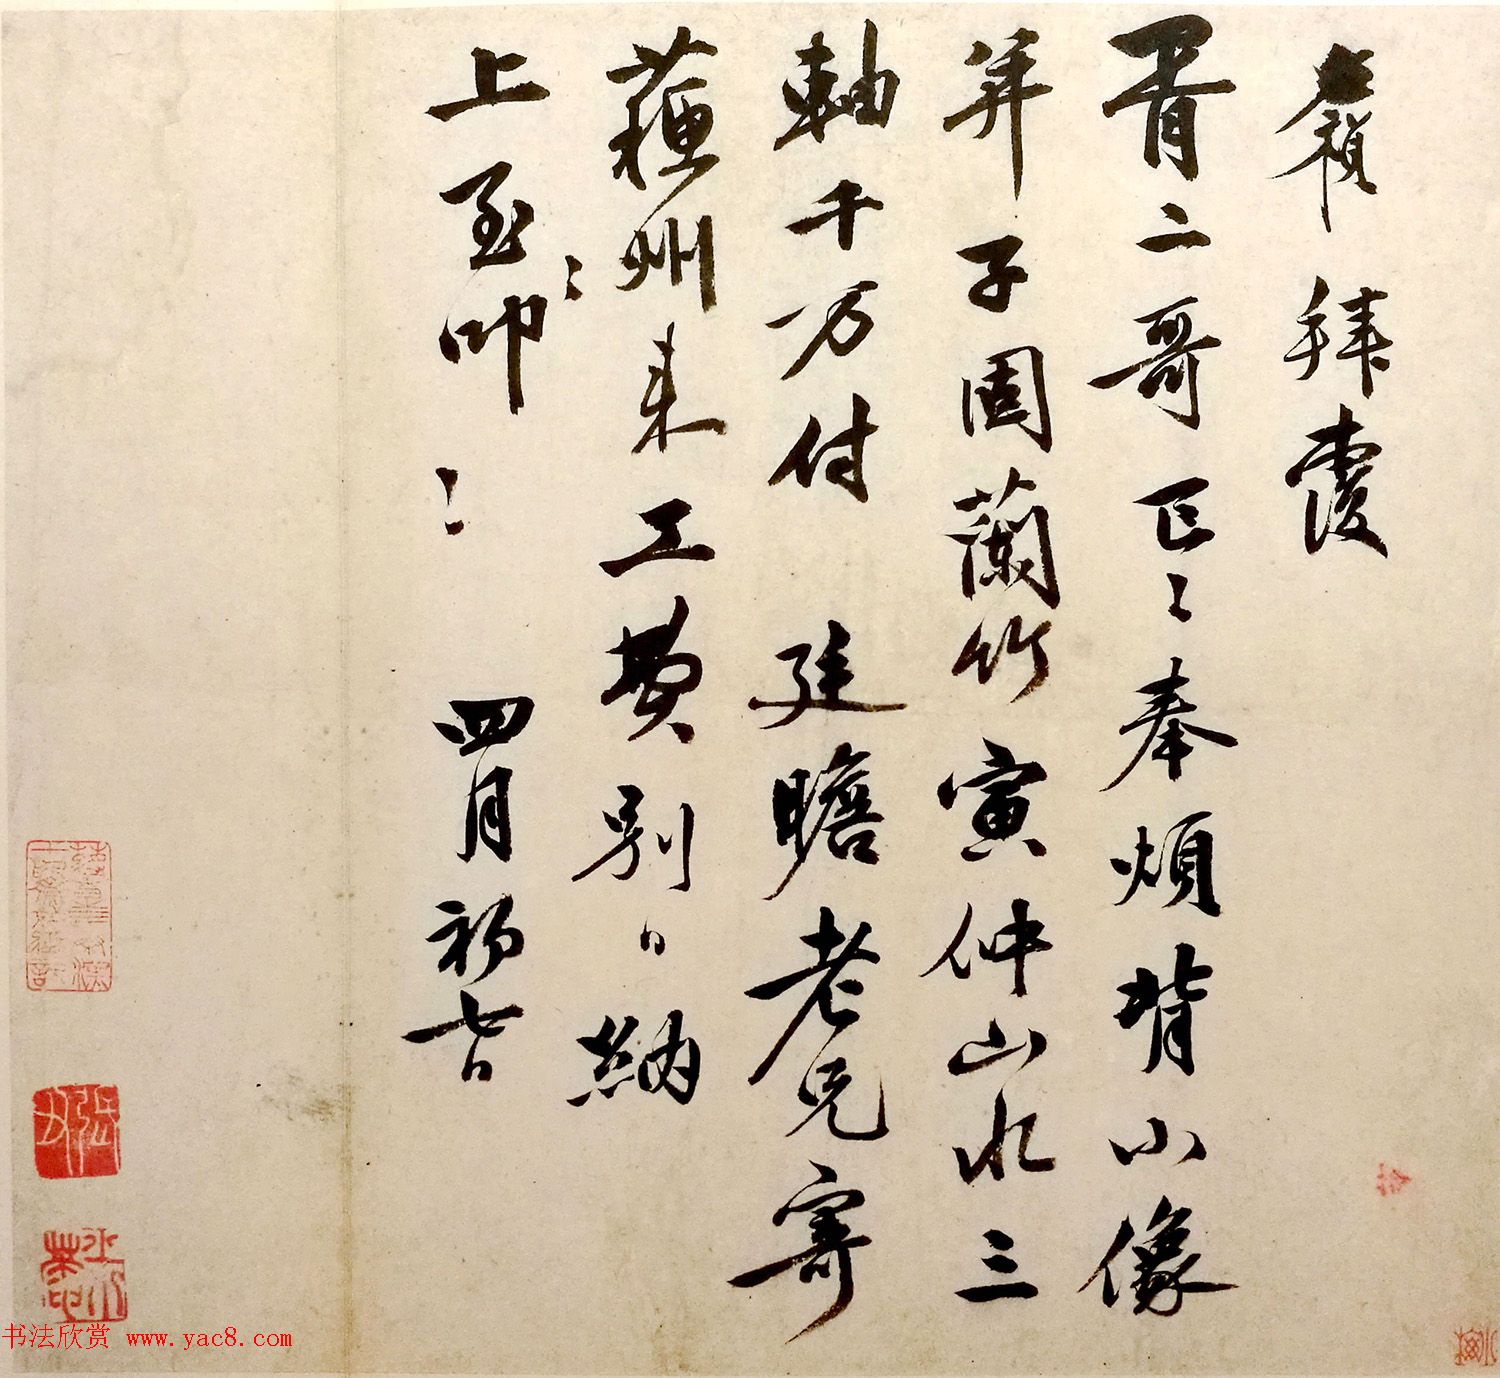 拜覆
胥二哥奉煩背小像
并子固蘭竹寅仲山水三
軸千万付 廷瞻老兄寄
蘇州来工費別納
上至〻叩〻 四月初七日
书法欣赏 www.yac8.com